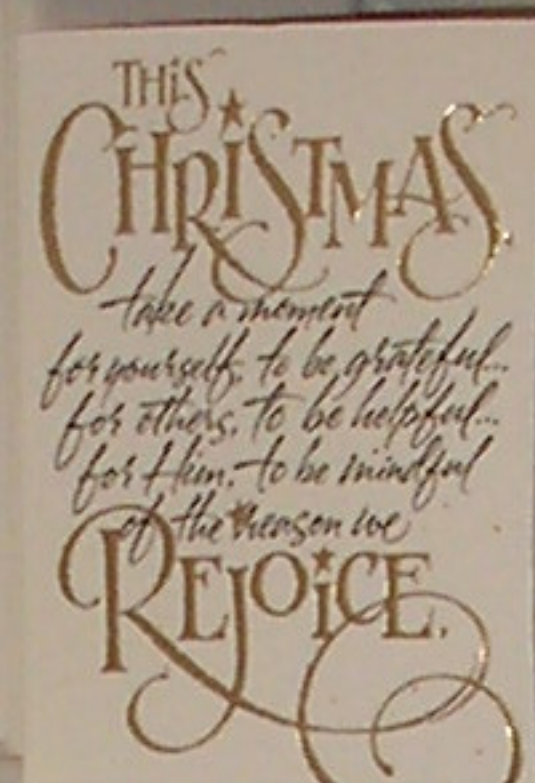 THiS
CHRiSTMAS,
take a moment
for yourself, to be grateful...
for others, to be helpful...
for Him, to be mindful
of the reason we
REJOiCE.